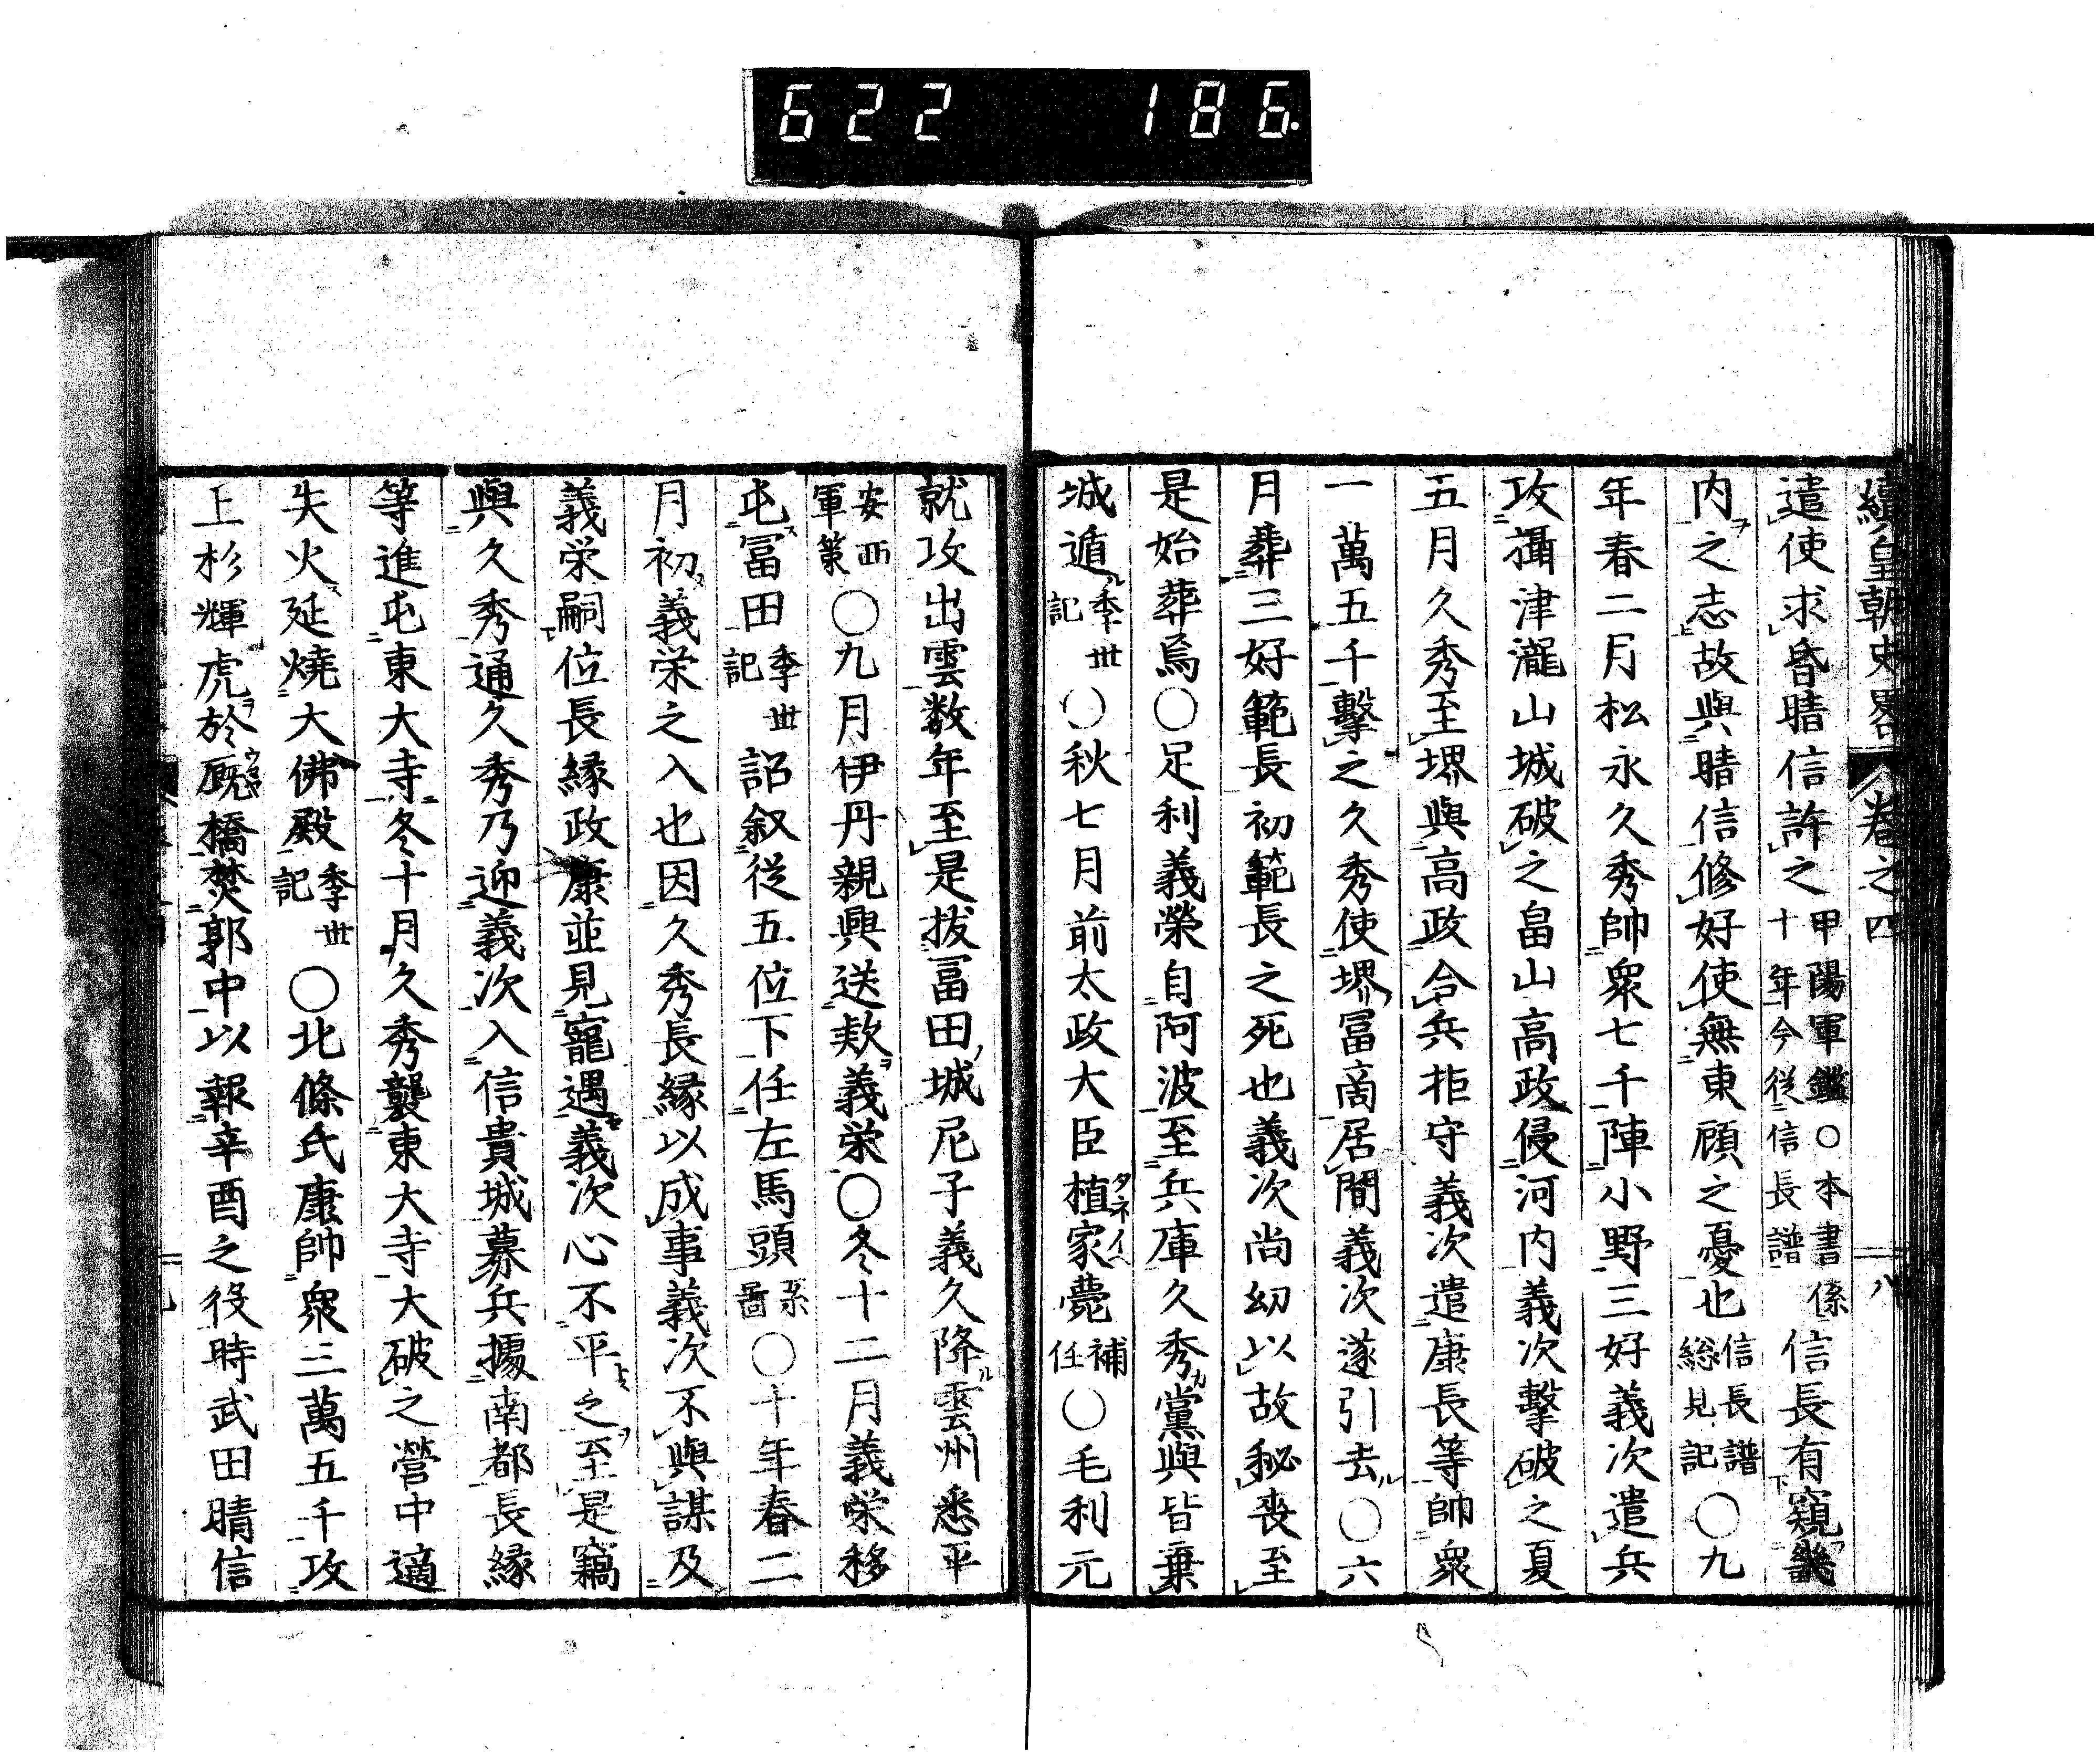 622 186.
續皇朝史畧 卷之四 八
遣使求昏晴信許之甲陽軍鑑○本書係十年今從信長譜信長有窺畿
内之志故與晴信修好使無東顧之憂也信長譜総見記○九
年春二月松永久秀帥衆七千陣小野三好義次遣兵
攻攝津瀧山城破之畠山高政侵河内義次擊破之夏
五月久秀至堺與高政合兵拒守義次遣康長等帥衆
一萬五千擊之久秀使堺冨商居間義次遂引去○六
月葬三好範長初範長之死也義次尚幼以故秘喪至
是始葬焉○足利義榮自阿波至兵庫久秀黨與皆棄
城遁季世記○秋七月前太政大臣植家薨補任○毛利元
就攻出雲数年至是拔冨田城尼子義久降雲州悉平
安西軍策○九月伊丹親興送欵義栄○冬十二月義栄移
屯冨田季世記詔叙從五位下任左馬頭系圖○十年春二
月初義栄之入也因久秀長縁以成事義次不與謀及
義栄嗣位長縁政康並見寵遇義次心不平之至是竊
與久秀通久秀乃迎義次入信貴城募兵據南都長縁
等進屯東大寺冬十月久秀襲東大寺大破之營中適
失火延燒大佛殿季世記○北條氏康帥衆三萬五千攻
上杉輝虎於厩橋焚郭中以報辛酉之役時武田晴信